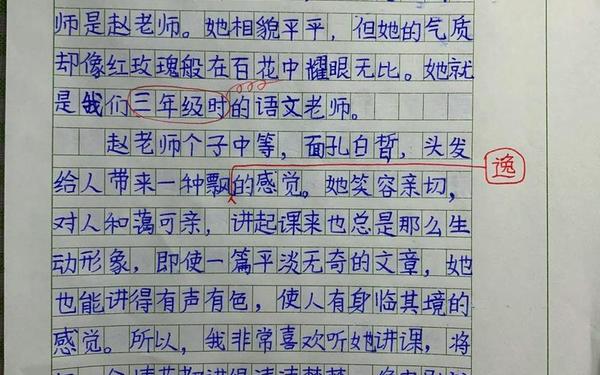 师是赵老师。她相貌平平，但她的气质
却像红玫瑰般在百花中耀眼无比。她就
是我们三年级时的语文老师。
赵老师个子中等，面孔白晳，头发
给人带来一种飘的感觉。她笑容亲切，
逸
对人和蔼可亲，讲起课来也总是那么生
动形象，即使一篇平淡无奇的文章，她
也能讲得有声有色，使人有身临其境的
感觉。所以，我非常喜欢听她讲课，将